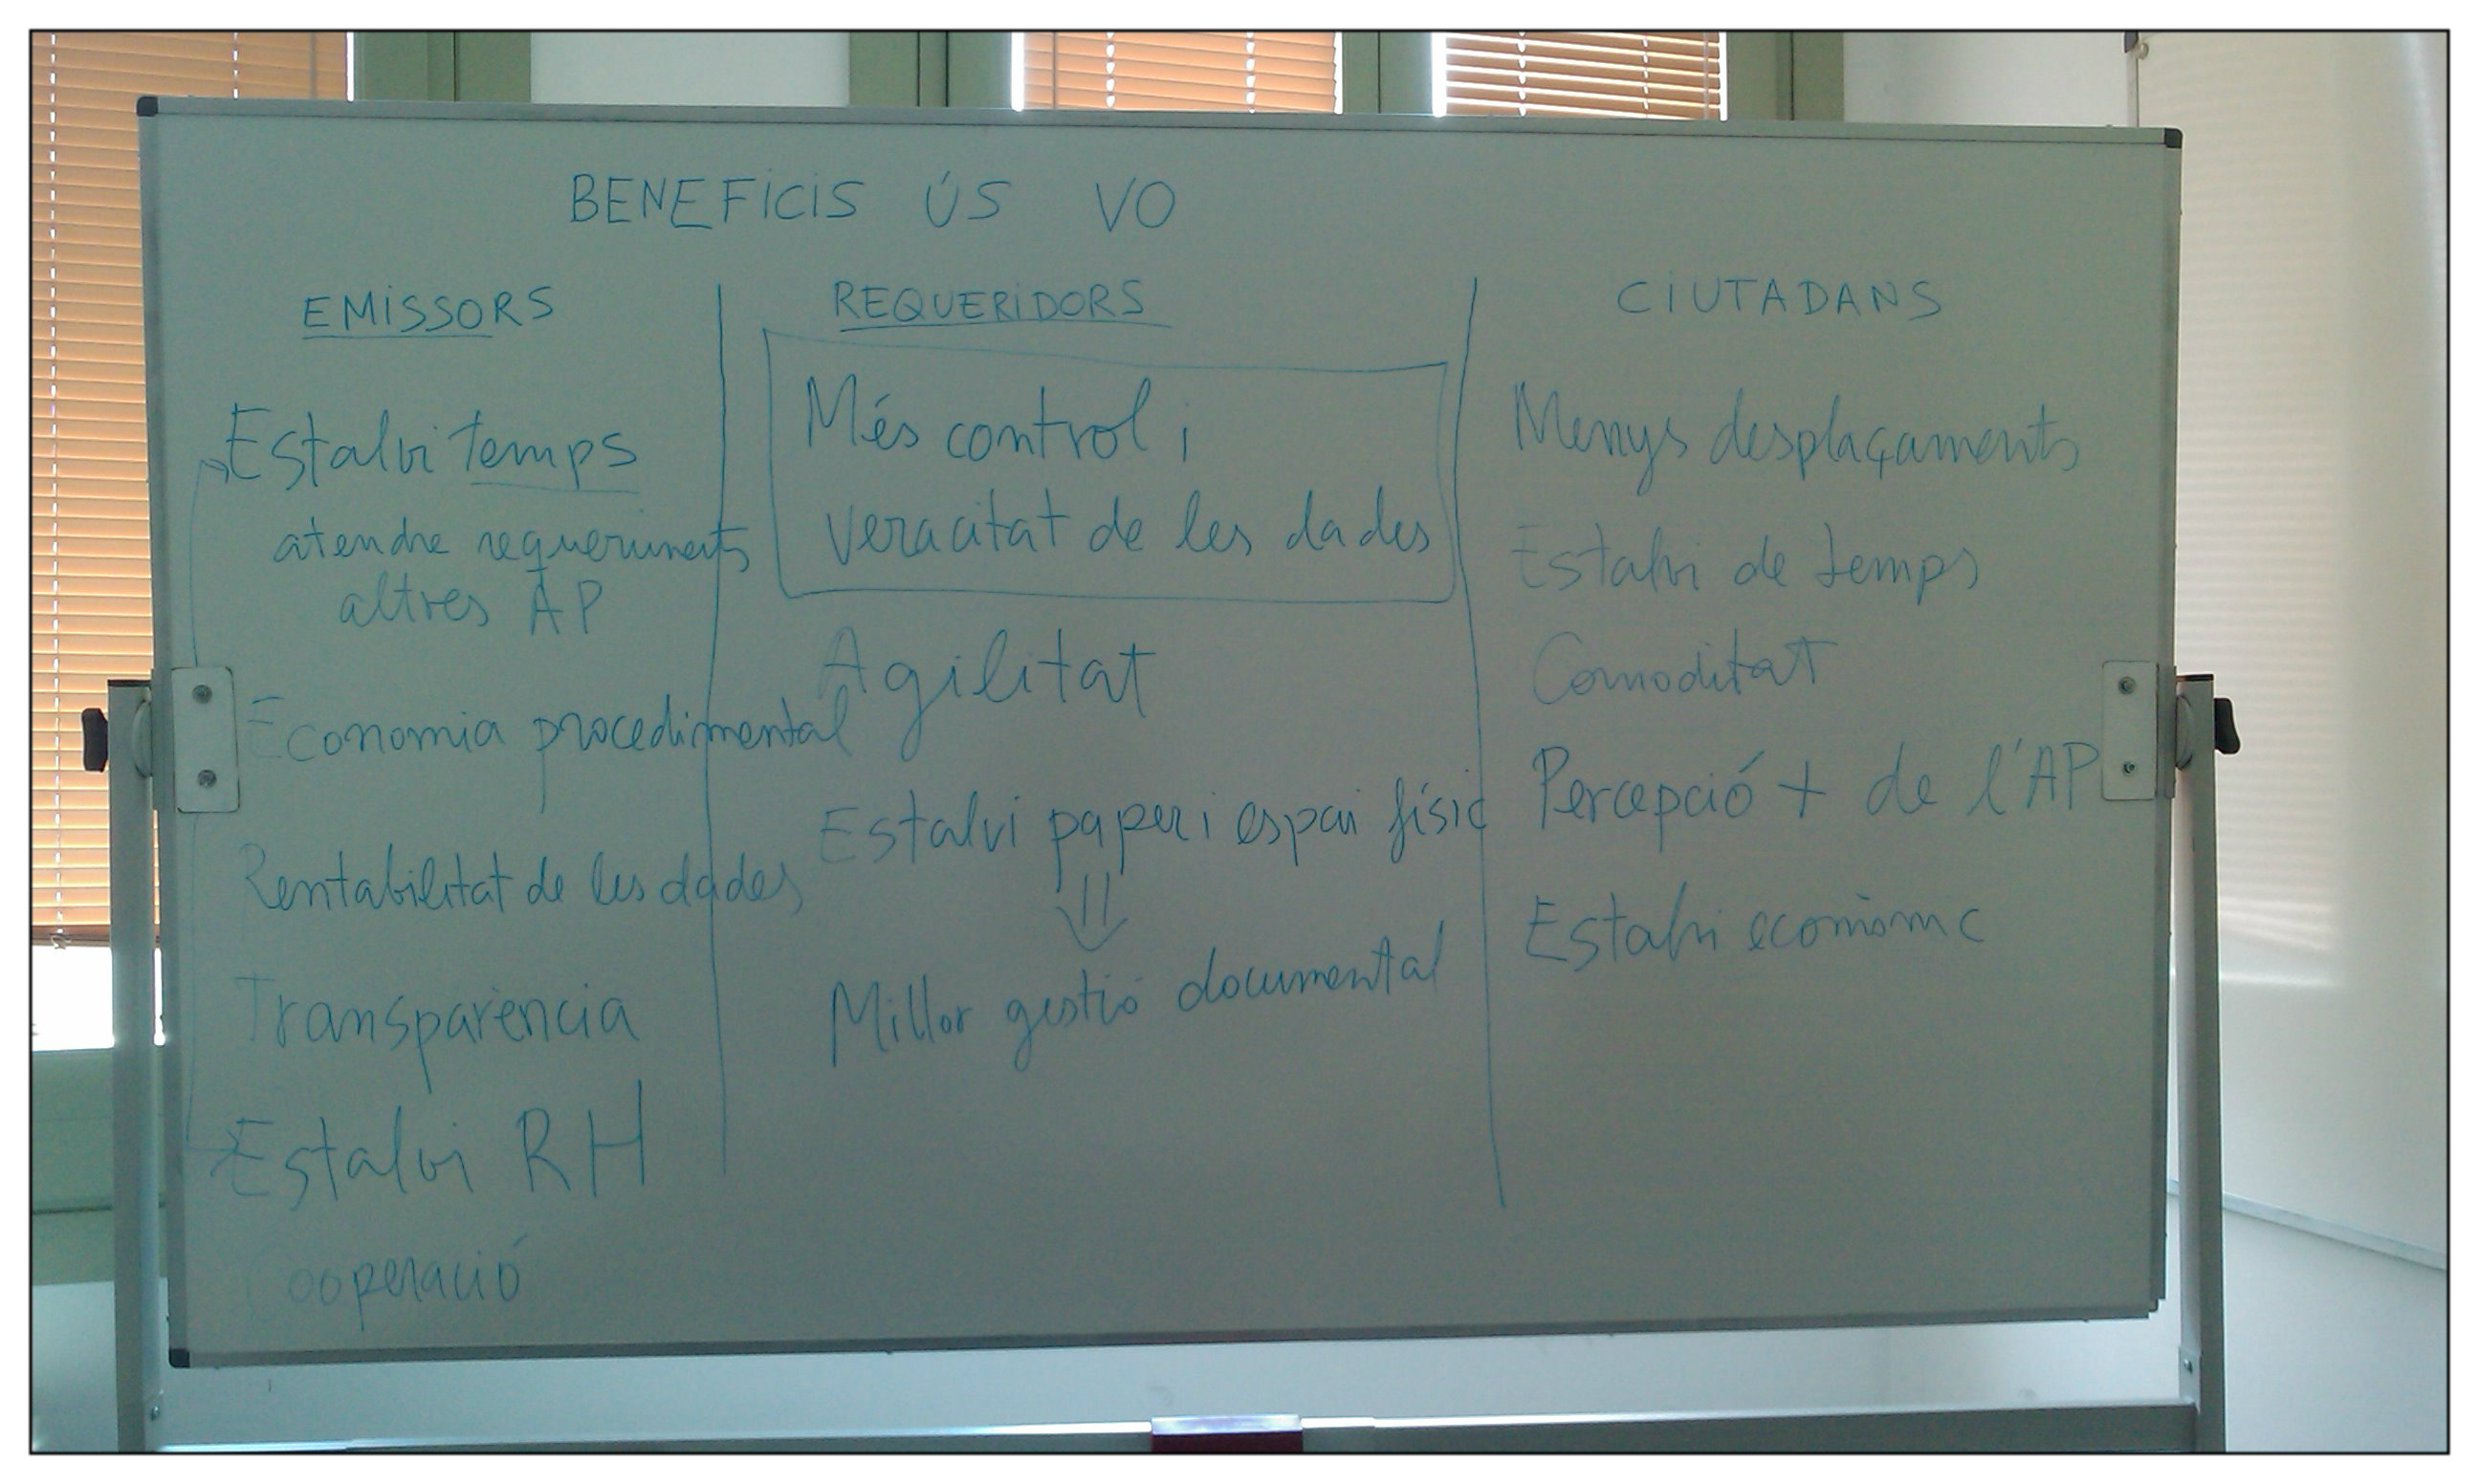 BENEFICIS ÚS VO
EMISSORS
Estalvi temps
atendre requeriments
altres AP
Economia procedimental
Rentabilitat de les dades
Transparència
Estalvi RH
Cooperació
REQUERIDORS
Més control i
veracitat de les dades
Agilitat
Estalvi paper i espai físic
Millor gestió documental
CIUTADANS
Menys desplaçaments
Estalvi de temps
Comoditat
Percepció + de l'AP
Estalvi econòmic